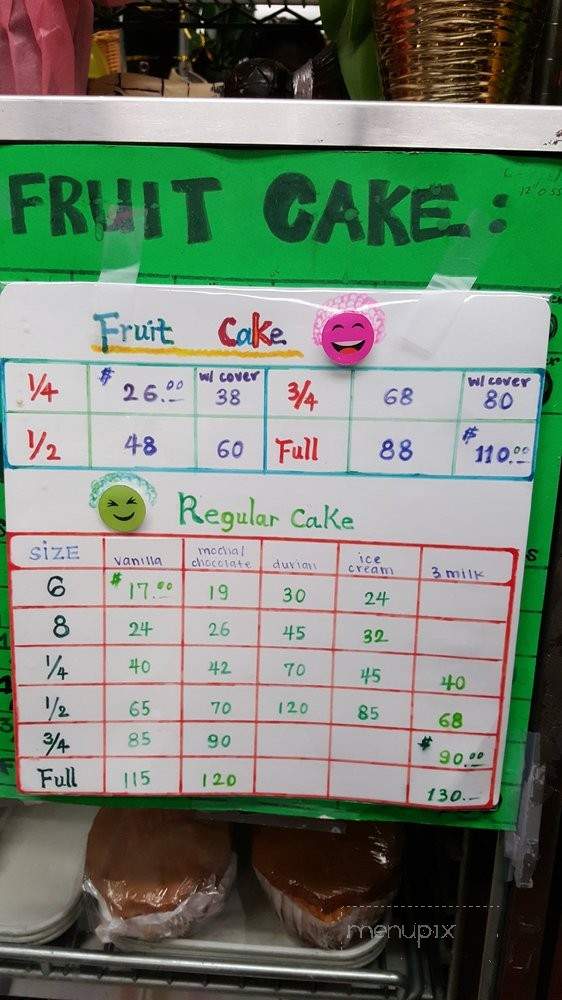 FRUIT CAKE:
Fruit Cake
1/4 $ 26.00 w/ cover 38 3/4 68 w/ cover 80
1/2 48 60 Full 88 $ 110.00
Regular Cake
SIZE vanilla mocha/ chocolate durian ice cream 3 milk
6 $ 17.00 19 30 24
8 24 26 45 32
1/4 40 42 70 45 40
1/2 65 70 120 85 68
3/4 85 90 $ 90.00
Full 115 120 130.-
menupix